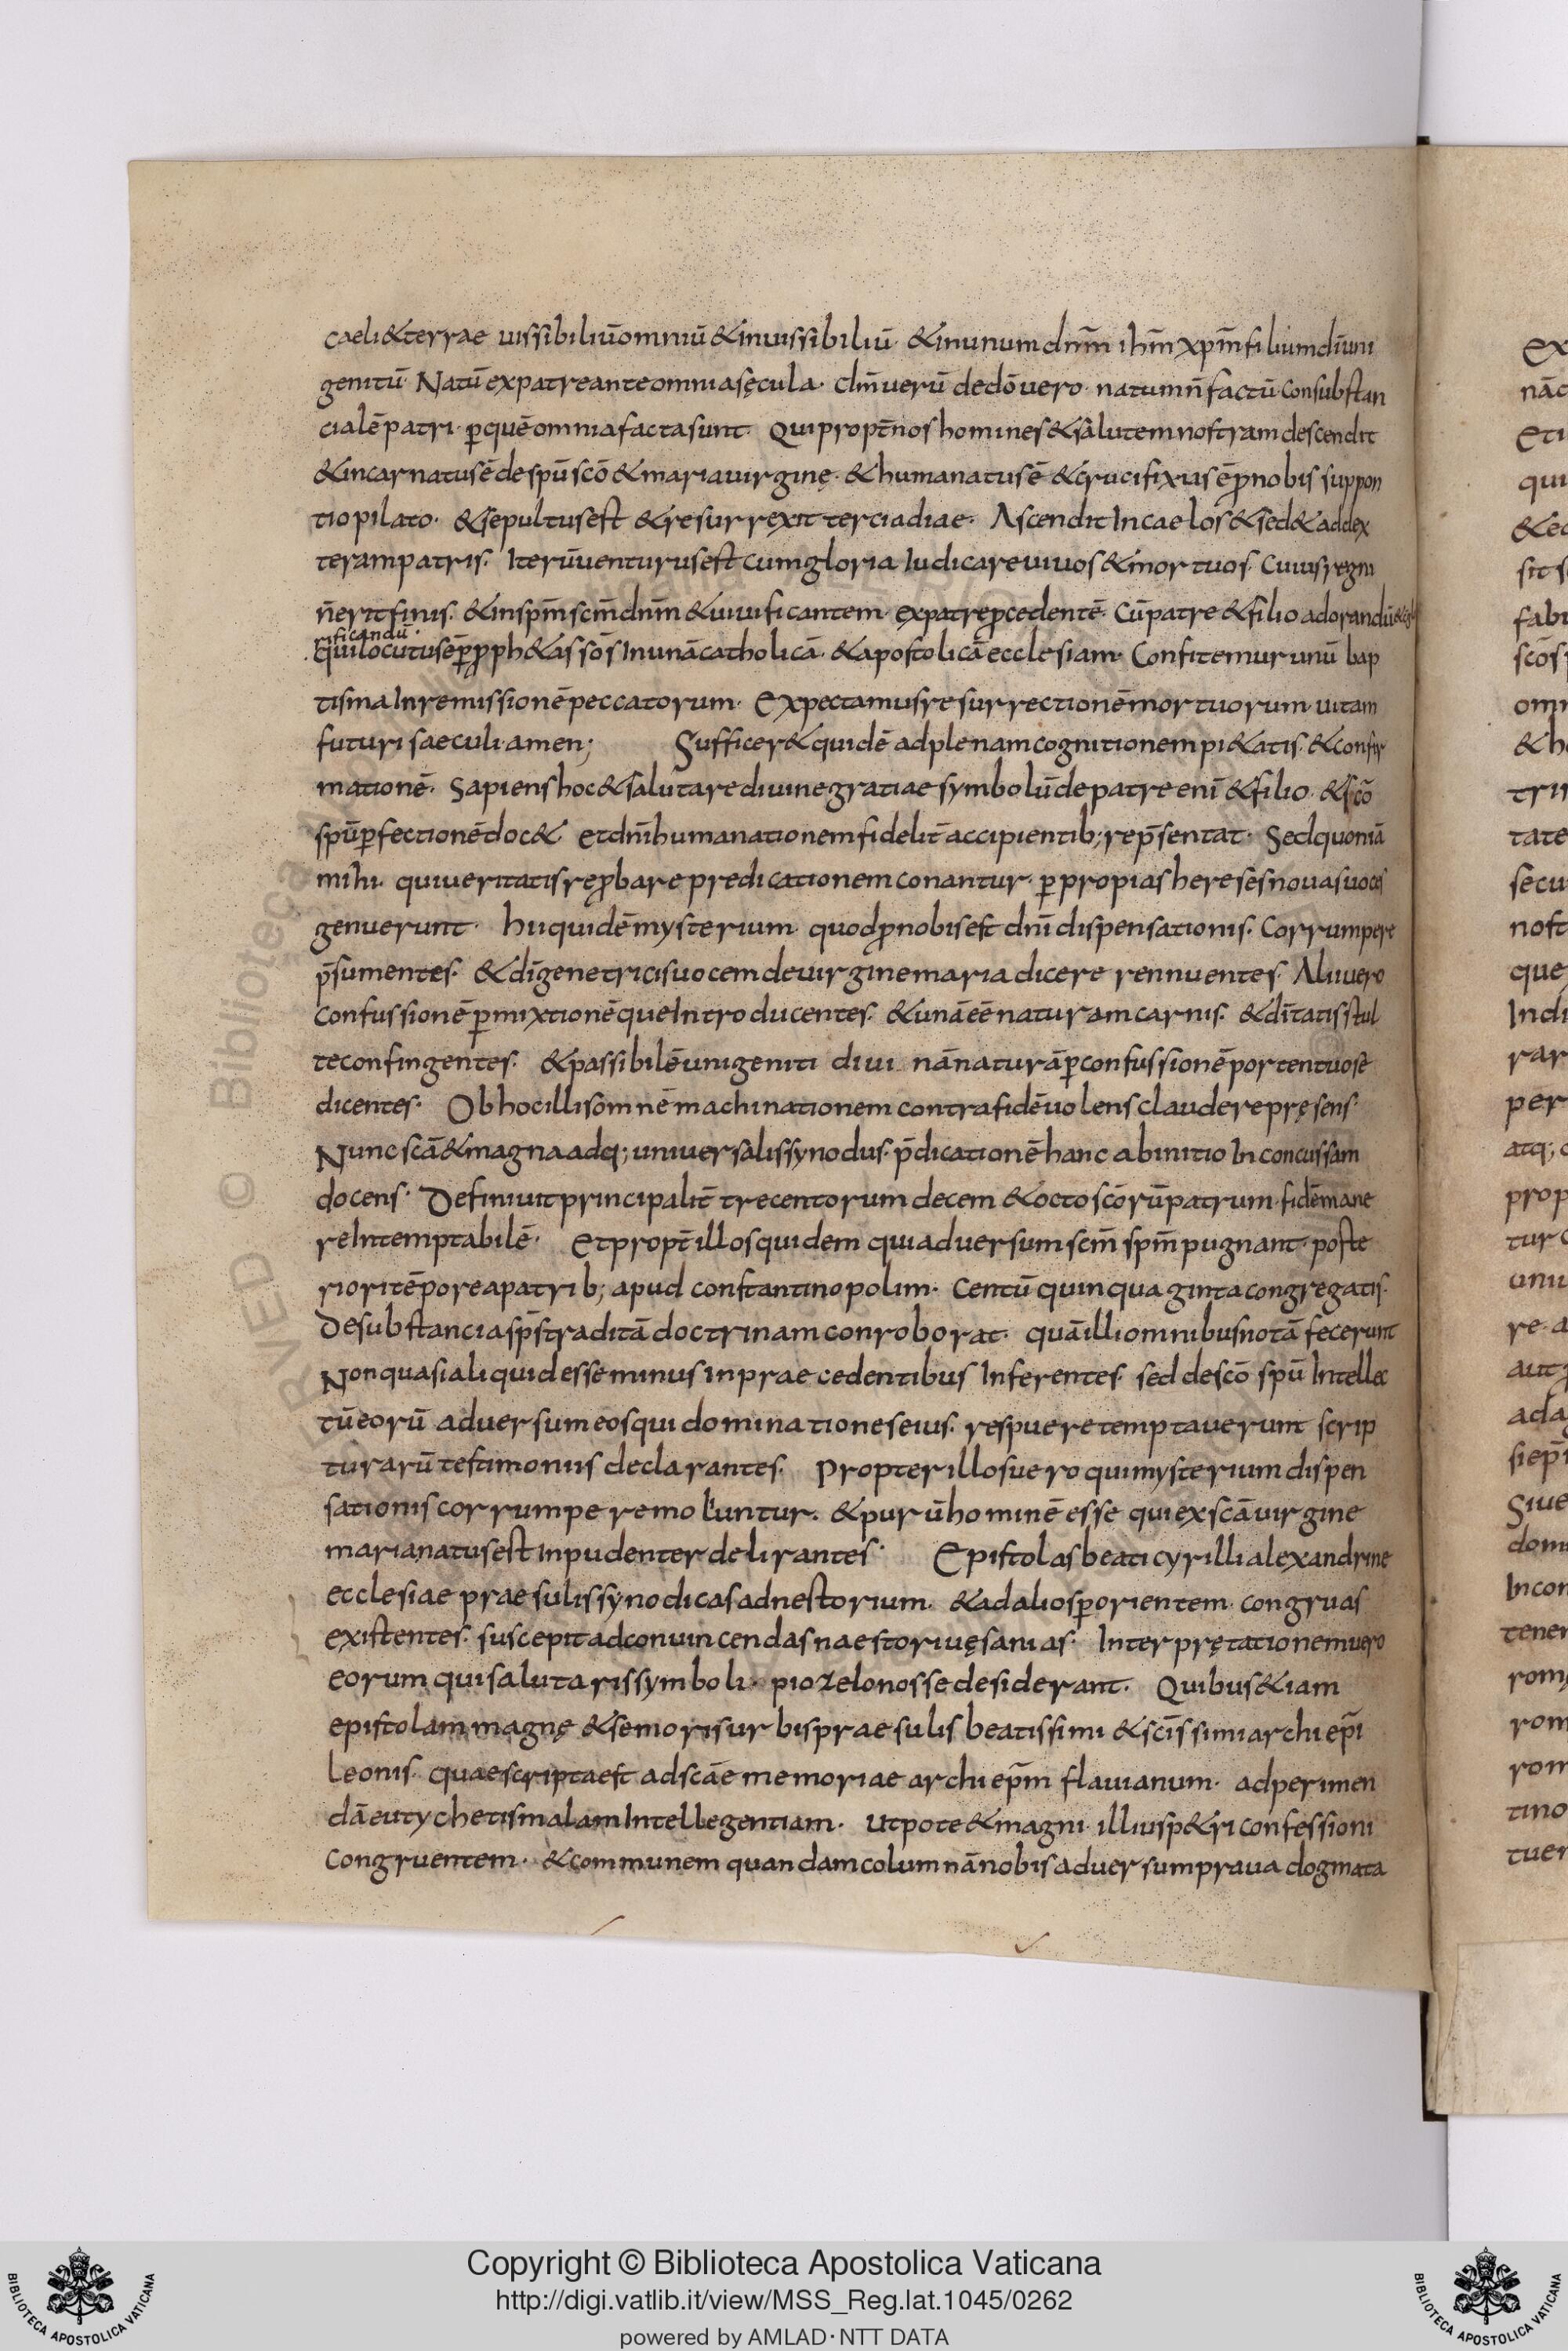 caeli & terrae uissibiliū omniū & inuissibiliū · & in unum dnm̄ ihm̄ xpm̄ filium dī uni
genitū · Natū ex patre ante omnia sęcula · dm̄ uerū de dō uero · natum n̄ factū · Consubstan
cialē patri · ꝑ quē omnia facta sunt · Qui propt̄ nos homines & salutem nostram descendit
& incarnatus ē de spū scō & maria uirginę · & humanatus ē & crucifixus ē ꝓ nobis sup pon
tio pilato · & sepultus est & resurrexit tercia diae · Ascendit In caelos & sed& ad dex
teram patris · Iterū uenturus est cum gloria Iudicare uiuos & mortuos · Cuius regni
n̄ erit finis · & in spm̄ scm̄ dnm̄ & uiuificantem · ex patre ꝓcedentē · Cū patre & filio adorandū & glo
rificandū ·
Qui locutus ē ꝑ ꝓph&as sōs In unā catholicā · & apostolicā ecclesiam · Confitemur unū bap
tisma In remissionē peccatorum · Expectamus resurrectionē mortuorum · uitam
futuri saeculi · amen ; Sufficer& quidē ad plenam cognitionem pi&atis · & confir
mationē · Sapiens hoc & salutare diuine gratiae symbolū de patre enī & filio · & scō
spū ꝑfectionē doc& et dnī humanationem fidelit̄ accipientib; rep̄sentat · Sed quoniā
mihi · qui ueritatis ręꝓbare predicationem conantur · ꝑ propias hereses nouas uoces
genuerunt · hii quidē mysterium quod ꝓ nobis est dnī dispensationis · Corrumpere
p̄sumentes · & dī genetricis uocem de uirgine maria dicere rennuentes · Alii uero
confussionē ꝑmixtionē que Introducentes · & unā eē naturam carnis · & dītatis stul
te confingentes · & passibilē unigeniti diui nā naturā ꝑ confussionē portentuose
dicentes · Ob hoc illis omnē machinationem contra fidē uolens claudere pręsens ·
Nunc scā & magna adq; uniuersalis synodus · p̄dicationē hanc ab initio In concussam
docens · Definiuit principalit̄ trecentorum decem & octo scōrū patrum · fidē mane
re Intemptabilē · Et propt̄ illos quidem qui aduersum scm̄ spm̄ pugnant · poste
riori tēpore a patrib; apud constantinopolim · Centū quinquaginta congregatis ·
De substancia sps̄ traditā doctrinam conroborat · quā illi omnibus notā fecerunt
Non quasi aliquid esse minus in praecedentibus Inferentes · sed de scō spū Intellec
tū eorū aduersum eos qui dominationes eius · respuere temptauerunt scrip
turarū testimoniis declarantes · Propter illos uero qui mysterium dispen
sationis corrumpere moliuntur · & purū hominē esse qui ex scā uirgine
maria natus est Inpudenter delirantes · Epistolas beati cyrilli alexandrine
ecclesiae praesulis synodicas ad nestorium · & ad alios ꝑ orientem · congruas
existentes · suscepit ad conuincendas naestori uęsanias · Interprętationem uero
eorum qui salutaris symboli · pio zelo nosse desiderant · Quibus &iam
epistolam magnę & semoris urbis praesulis beatissimi & scīssimi archi ep̄i
Leonis · quae scripta est ad scāe memoriae archi ep̄m flauianum · ad perimen
dā eutychetis malam Intellegentiam · Utpote & magni · illius p&ri confessioni
congruentem · & communem quandam columnā nobis aduersum praua dogmata
Copyright © Biblioteca Apostolica Vaticana
http://digi.vatlib.it/view/MSS_Reg.lat.1045/0262
powered by AMLAD·NTT DATA
BIBLIOTECA APOSTOLICA VATICANA
BIBLIOTECA APOSTOLICA VATICANA